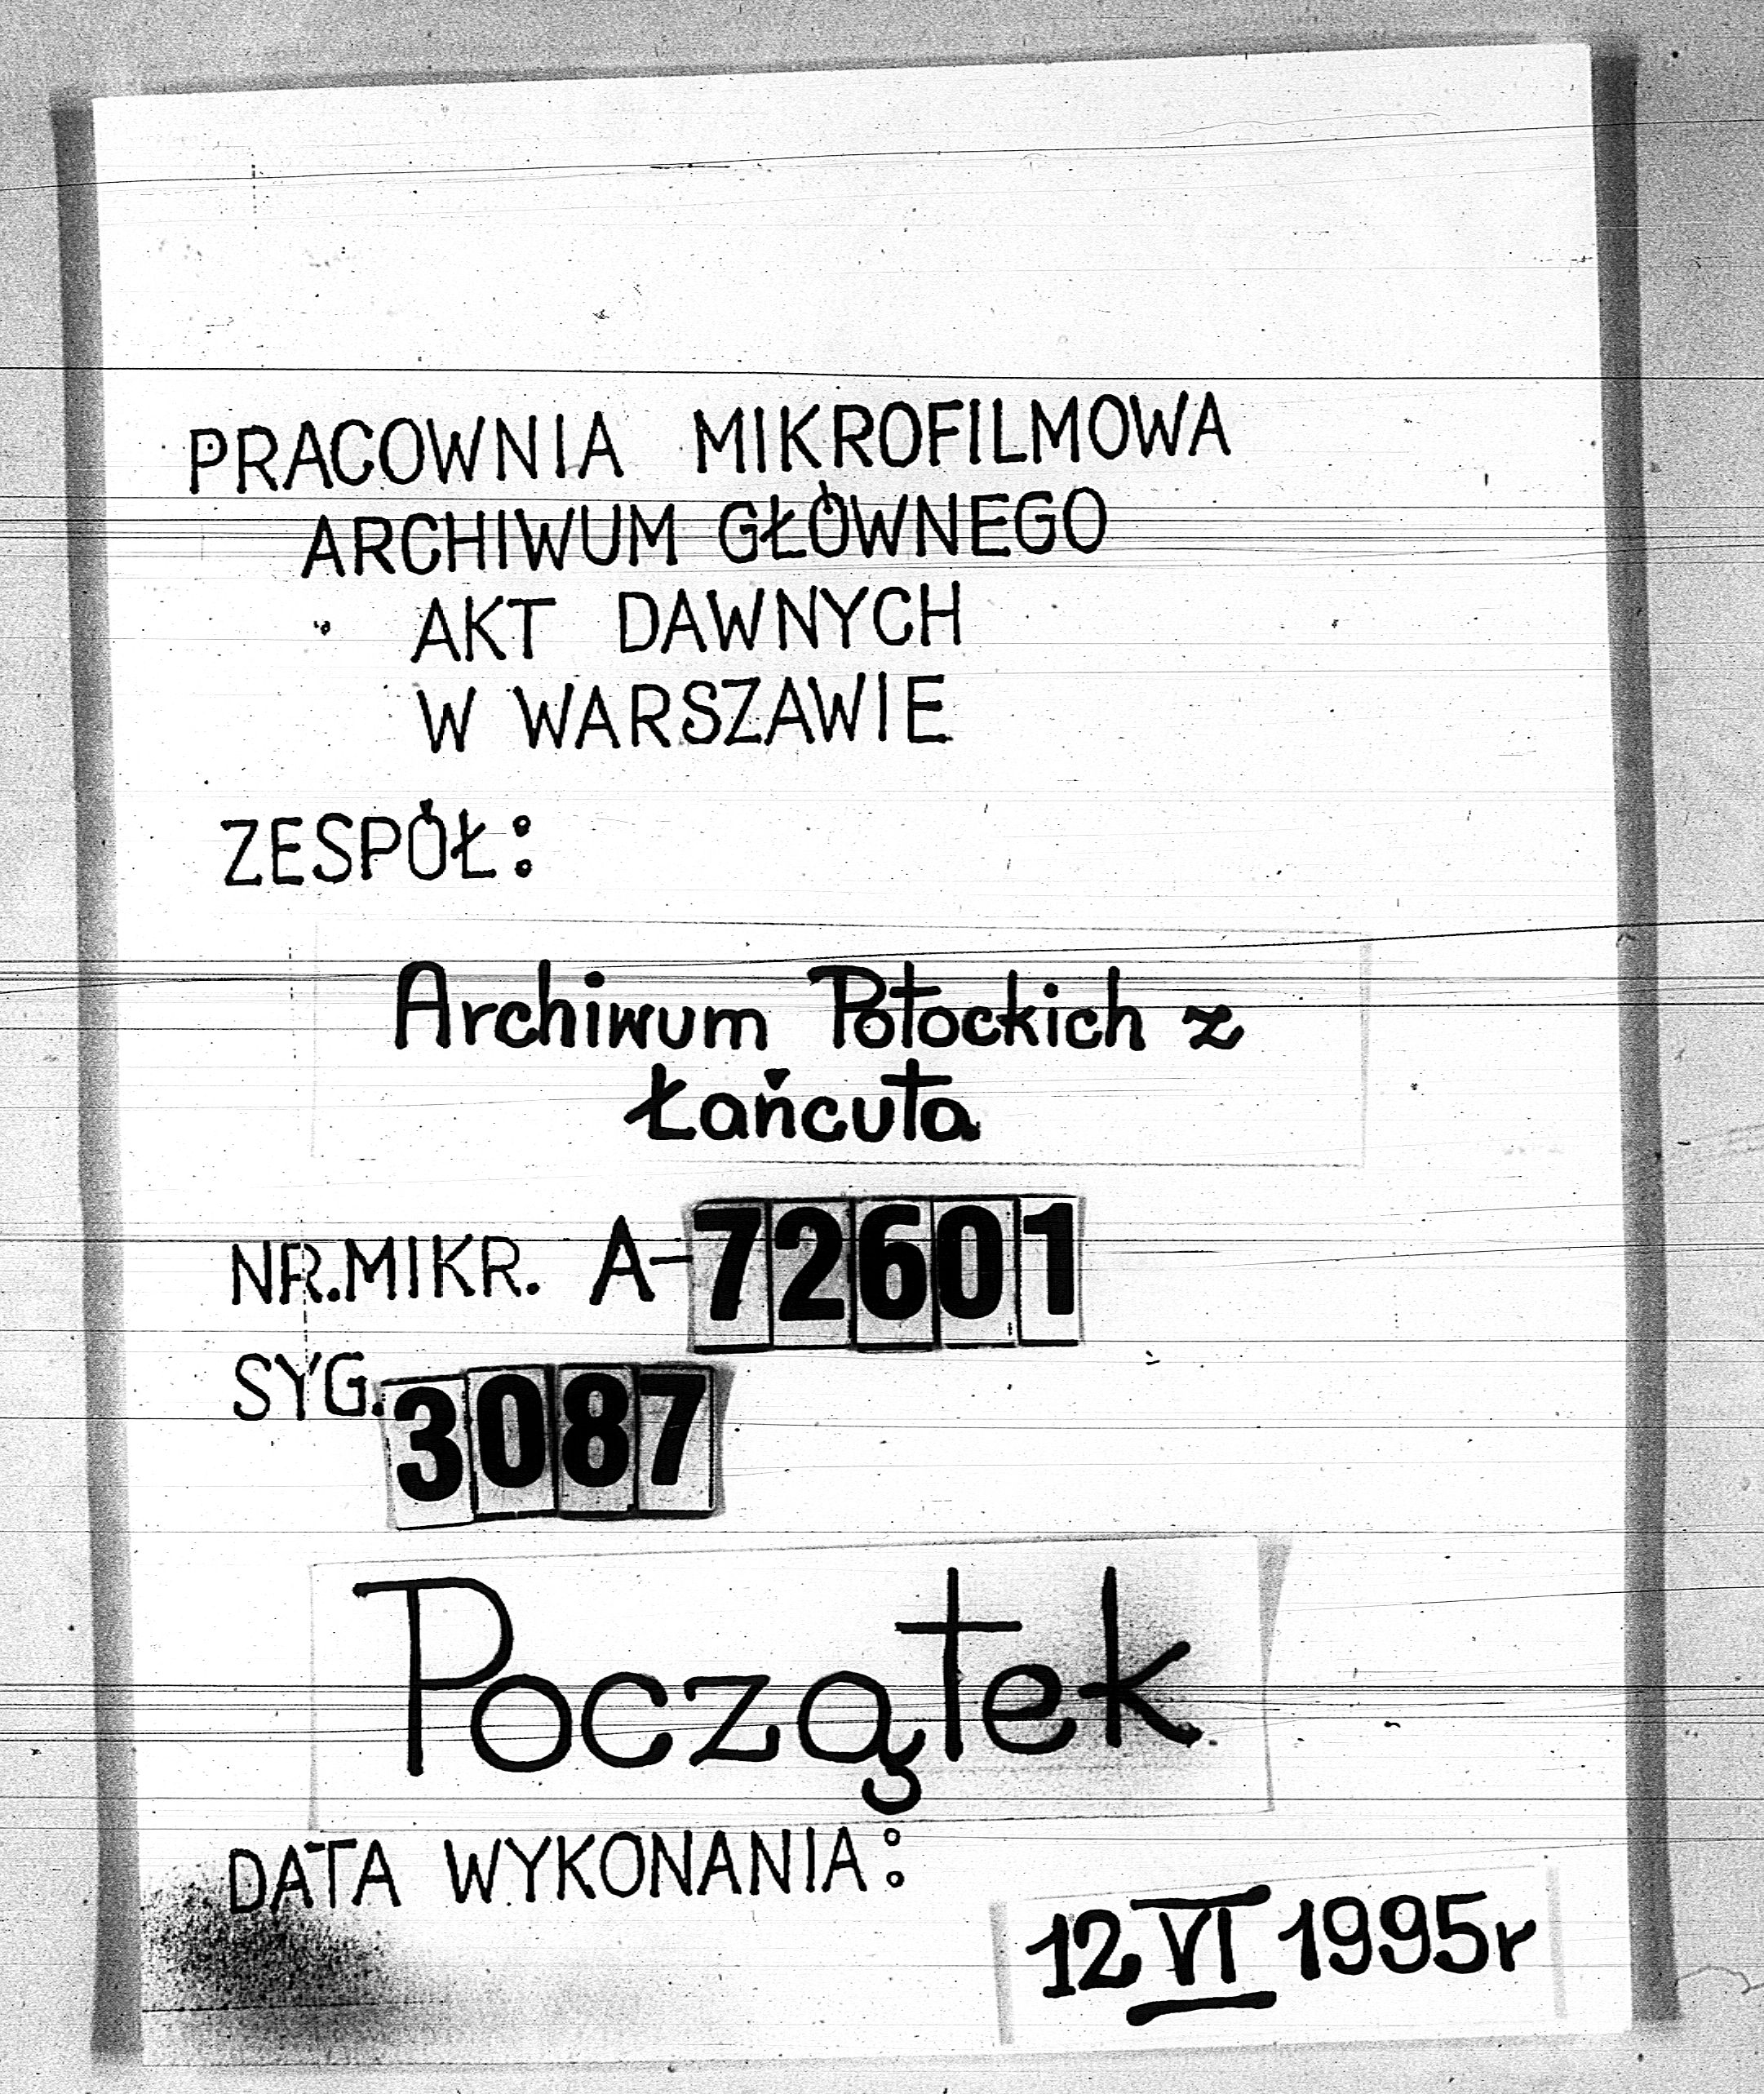 PRACOWNIA MIKROFILMOWA
ARCHIWUM GŁÓWNEGO
AKT DAWNYCH
W WARSZAWIE
ZESPÓŁ:
Archiwum Potockich z
Łańcuta
NR.MIKR. A-72601
SYG. 3087
Początek
DATA WYKONANIA:
12 VI 1995r